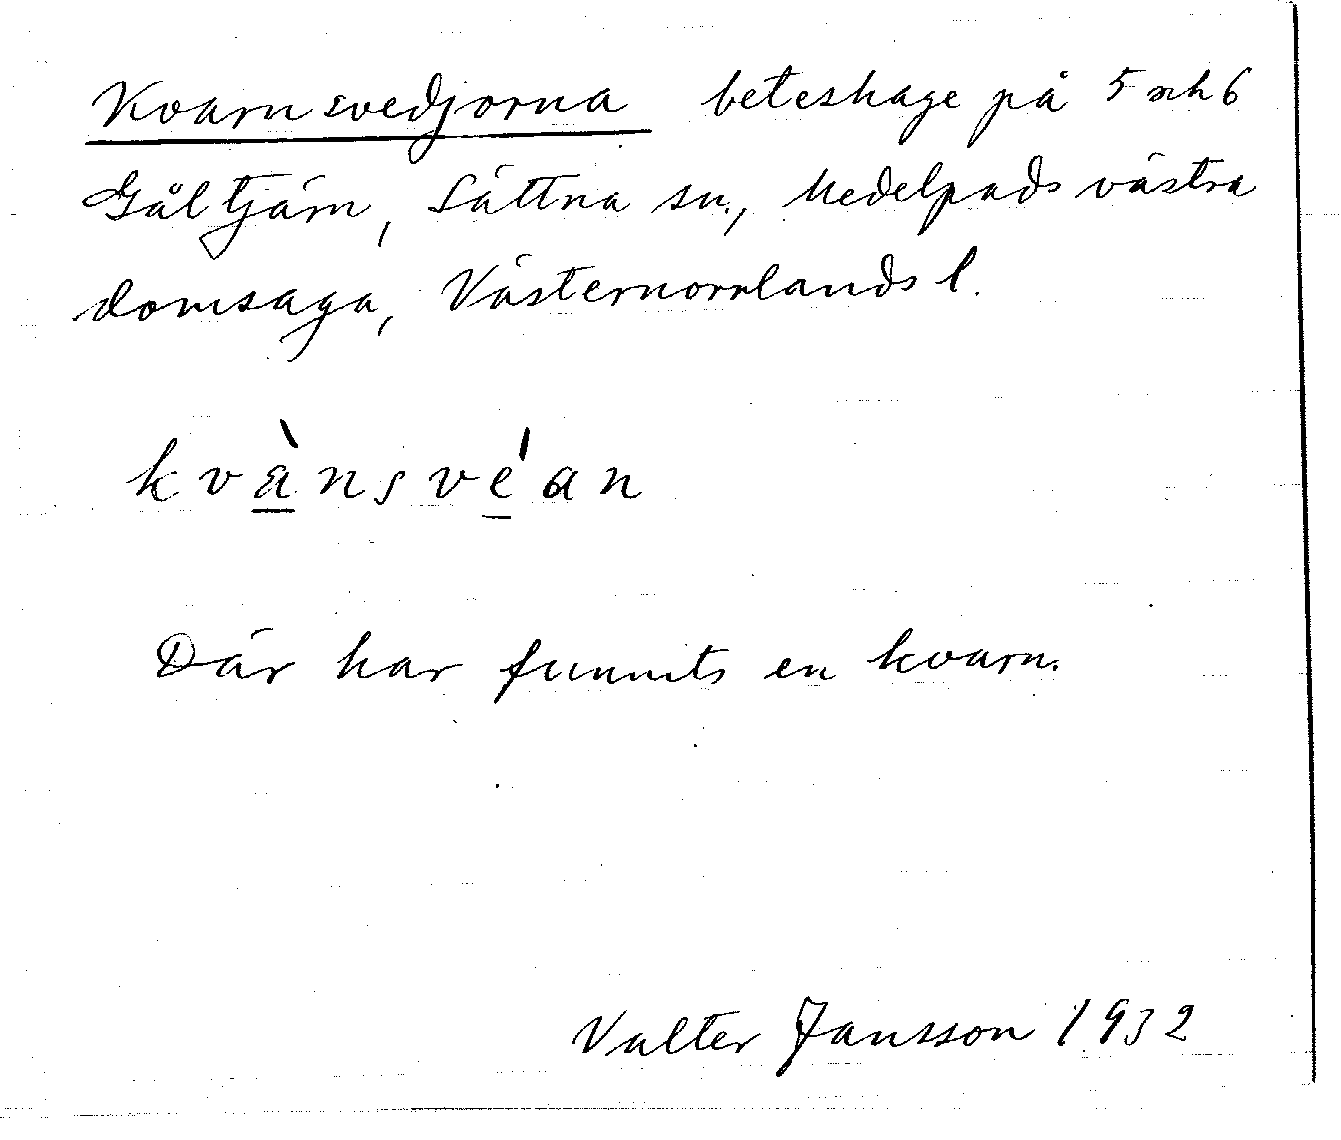 Kvarnsvedjorna beteshage på 5 och 6
Gåltjärn, Sättna sn., Medelpads västra
domsaga, Västernorrlands l.
kvànsvéan
Där har funnits en kvarn.
Valter Jansson 1932